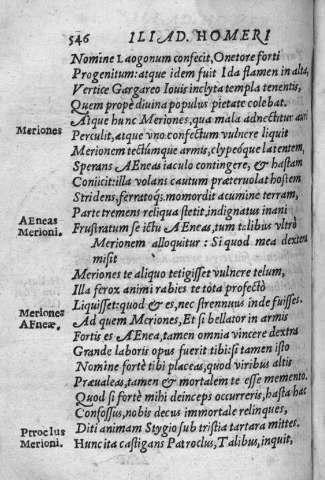 546 ILIAD. HOMERI
Nomine Laogonum confecit, Onetore forti
Progenitum: atque idem fuit Ida flamen in alta,
Vertice Gargareo Iouis inclyta templa tenentis,
Quem propè diuina populus pietate colebat.
Atque hunc Meriones, qua mala adnectitur auri
Meriones
Perculit, atque vno confectum vulnere liquit
Merionem tectúmque armis, clypeóque latentem,
Sperans AEneas iaculo contingere, & hastam
Coniicit: illa volans cautum præteruolat hostem
Stridens, ferratoq́; momordit acumine terram,
Parte tremens reliqua stetit, indignatus inani
AEneas
Merioni.
Frustratum se ictu AEneas, tum talibus vltrò
Merionem alloquitur: Si quod mea dextera
misit
Meriones te aliquo tetigisset vulnere telum,
Illa ferox animi rabies te tota profectò
Liquisset: quod & es, nec strennuus inde fuisses.
Meriones
AEneæ.
Ad quem Meriones, Et si bellator in armis
Fortis es AEnea, tamen omnia vincere dextra
Grande laboris opus fuerit tibi: si tamen isto
Nomine fortè tibi placeas, quod viribus altis
Præualeas, tamen & mortalem te esse memento.
Quod si fortè mihi deinceps occurreris, hasta hac
Confossus, nobis decus immortale relinques,
Diti animam Stygio sub tristia tartara mittes.
Ptroclus
Merioni.
Hunc ita castigans Patroclus, Talibus, inquit,